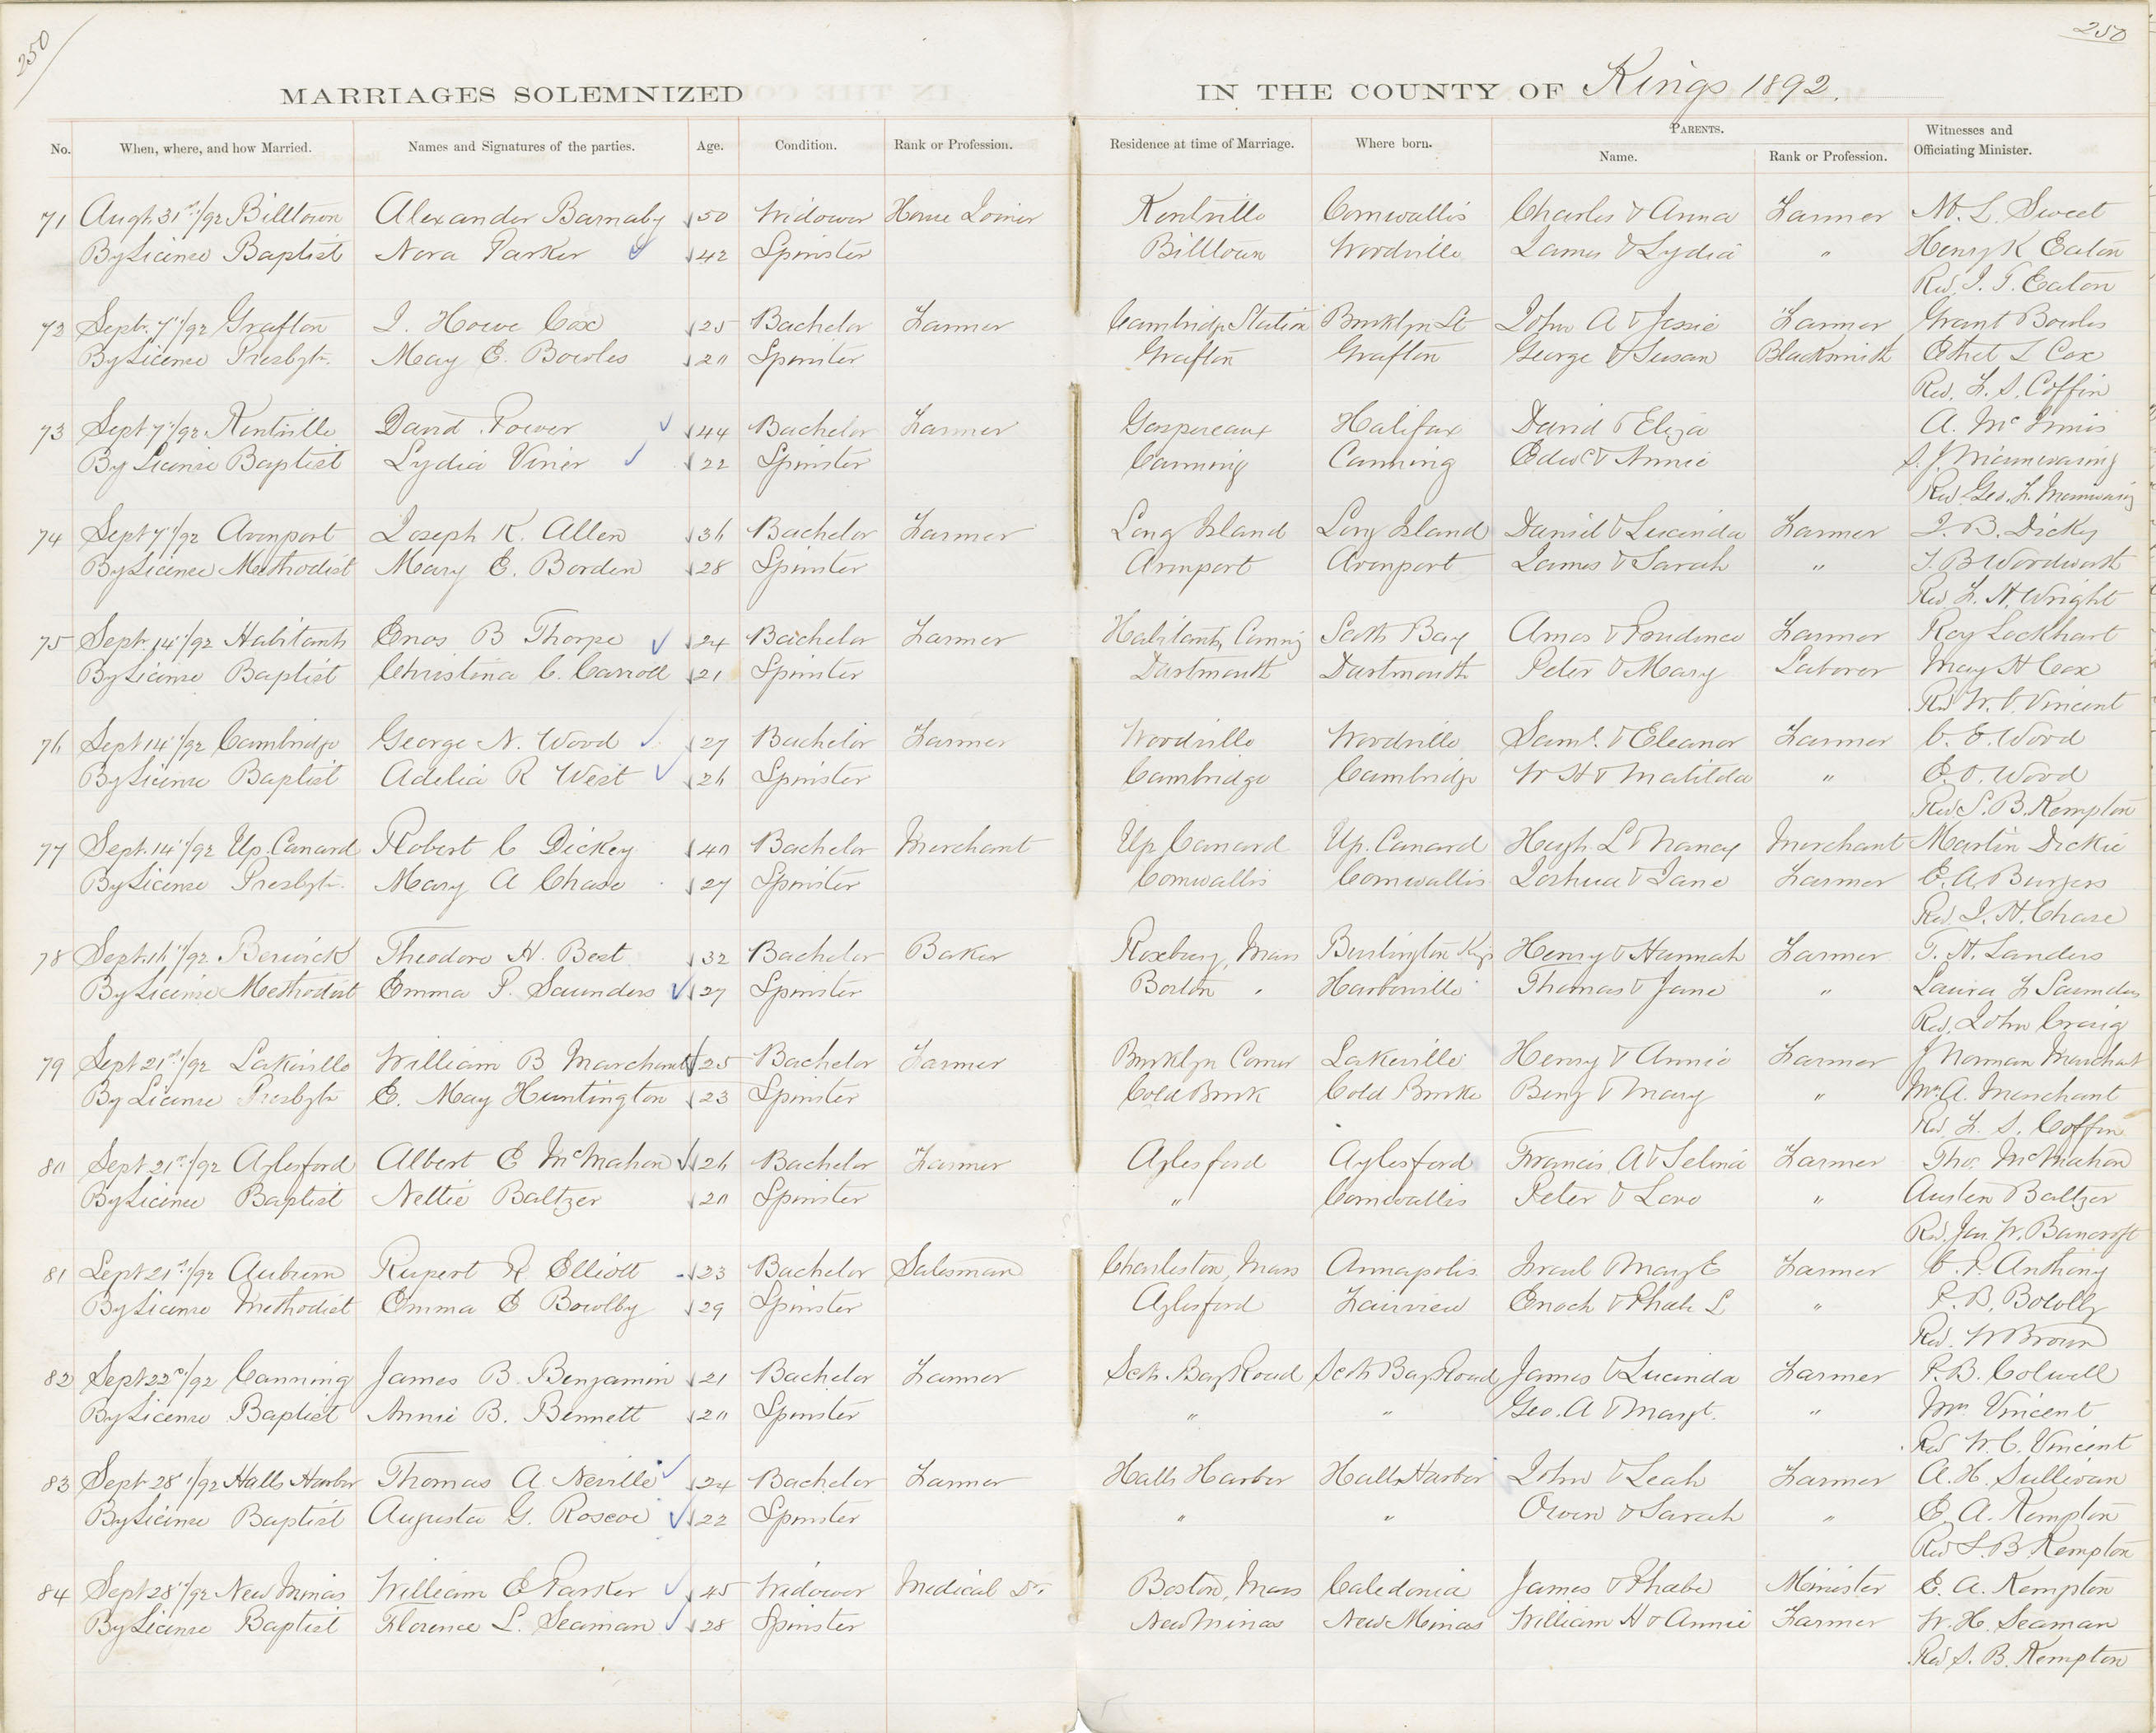 250
250
MARRIAGES SOLEMNIZED IN THE COUNTY OF Kings 1892.
No. When, where, and how Married. Names and Signatures of the parties. Age. Condition. Rank or Profession. Residence at time of Marriage. Where born. PARENTS. Name. Rank or Profession. Witnesses and Officiating Minister.
71 Augt 31st/92 Billtown Alexander Barnaby 50 Widower House Joiner Kentville Cornwallis Charles & Anna Farmer M. L. Sweet
By License Baptist Nora Parker 42 Spinster Billtown Woodville James & Lydia " Henry K Eaton
Rev. J. T. Eaton
72 Sept. 7"/92 Grafton J. Howe Cox 25 Bachelor Farmer Cambridge Station Brooklyn St John A & Jessie Farmer Grant Bowles
By License Presbytr. May E. Bowles 20 Spinster Grafton Grafton George & Susan Blacksmith Ethel L Cox
Rev. F. S. Coffin
73 Sept 7"/92 Kentville David Power 44 Bachelor Farmer Gaspereaux Halifax David & Eliza A. McInnis
By License Baptist Lydia Viner 22 Spinster Canning Canning Edwd & Annie S. J. Mainwaring
Rev Geo. F. Mainwaring
74 Sept 7"/92 Avonport Joseph K. Allen 36 Bachelor Farmer Long Island Long Island Daniel & Lucinda Farmer J. B. Dicky
By License Methodist Mary E. Borden 28 Spinster Avonport Avonport James & Sarah " T. B Woodworth
Rev F. H. Wright
75 Sept. 14"/92 Habitants Enos B Thorpe 24 Bachelor Farmer Habitants, Canning Scotts Bay Amos & Prudence Farmer Roy Lockhart
By License Baptist Christina C. Carroll 21 Spinster Dartmouth Dartmouth Peter & Mary Laborer May H Cox
Rev W. C. Vincent
76 Sept 14"/92 Cambridge George N. Wood 27 Bachelor Farmer Woodville Woodville Saml. & Eleanor Farmer C. E. Wood
By License Baptist Adelia R West 26 Spinster Cambridge Cambridge W H & Matilda " E. O. Wood
Rev S. B. Kempton
77 Sept. 14"/92 Up. Canard Robert C Dickey 40 Bachelor Merchant Up Canard Up. Canard Hugh L & Nancy Merchant Martin Dickie
By License Presbytr. Mary A Chase 27 Spinster Cornwallis Cornwallis Joshua & Jane Farmer C. A. Burgess
Rev. J. H. Chase
78 Sept. 16"/92 Berwick Theodore H. Best 32 Bachelor Baker Roxbury, Mass Burlington Kgs Henry & Hannah Farmer T. H. Landers
By License Methodist Emma P. Saunders 27 Spinster Boston " Harborville Thomas & Jane " Laura F Saunders
Rev. John Craig
79 Sept 21st/92 Lakeville William B Marchant 25 Bachelor Farmer Brooklyn Corner Lakeville Henry & Annie Farmer J Norman Marchant
By License Presbytr E. May Huntington 23 Spinster Cold Brook Cold Brooke Benj & Mary " Mrs. A. Marchant
Rev. F. S. Coffin
80 Sept 21st/92 Aylesford Albert E McMahon 26 Bachelor Farmer Aylesford Aylesford Francis A & Selina Farmer Thos. McMahon
By License Baptist Nettie Baltzer 20 Spinster " Cornwallis Peter & Love " Austen Baltzer
Rev. Jas. W. Bancroft
81 Sept 21st/92 Auburn Rupert R Elliott 23 Bachelor Salesman Charleston, Mass Annapolis Israel Mary E Farmer C. P. Anthony
By License Methodist Emma E Bowlby 29 Spinster Aylesford Fairview Enoch & Phebe L " P. B. Bowlby
Rev. W Brown
82 Sept 22d/92 Canning James B. Benjamin 21 Bachelor Farmer Scots. Bay Road Scots Bay Road James & Lucinda Farmer P. B. Colwell
By License Baptist Annie B. Bennett 20 Spinster " " Geo. A & Margt. " Mrs Vincent
Rev W. C. Vincent
83 Sept 28"/92 Halls Harbor Thomas A Neville 24 Bachelor Farmer Halls Harbor Halls Harbor John & Leah Farmer A. H. Sullivan
By License Baptist Augusta G. Roscoe 22 Spinster " " Owen & Sarah " E. A. Kempton
Rev S. B. Kempton
84 Sept 28"/92 New Minas William E Parker 45 Widower Medical Dr. Boston, Mass Caledonia James & Phebe Minister E. A. Kempton
By License Baptist Florence L. Seaman 28 Spinster New Minas New Minas William H & Annie Farmer W. H. Seaman
Rev S. B. Kempton